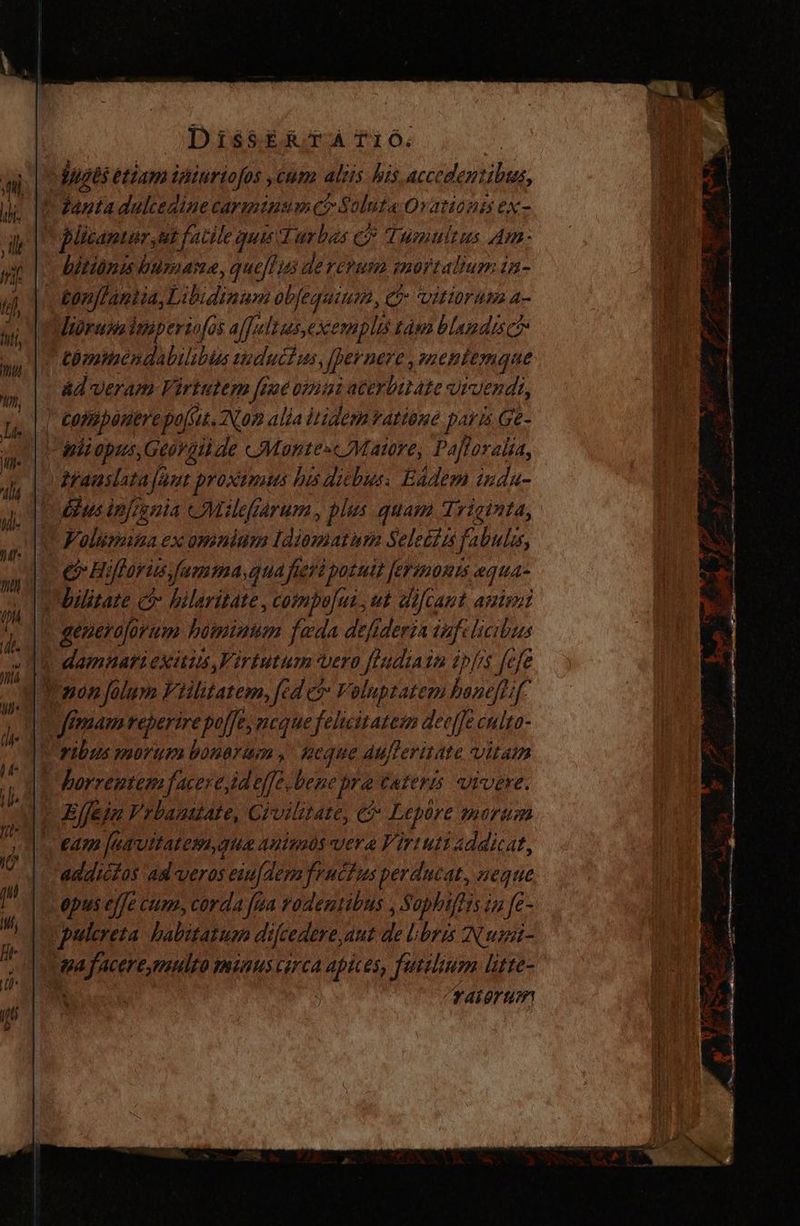 DISSERTATIO.
iuges etiam iniuriosos, cum aliis his accedentibus,
tanta dulcedine carminum & Soluta Orationis ex-
plicantur, ut facile quis Turbas & Tumultus Am-
bitionis humanæ, quessus de rerum mortalium in-
constantia, Libidinum obsequium, & vitiorum a-
liorum imperiosos assultus, exemplis tàm blandis &
commendabilibus inductus, spernere, mentemque
ad veram Virtutem sine omni acerbitate vivendi,
componere possit. Non alia itidem ratione paris Ge-
nii opus, Georgii de Monte-Maiore, Pastoralia,
translata sunt proximus his diebus. Eâdem indu-
ctus insignia Milessarum, plus quam Triginta,
Volumina ex omnium Idiomatum Selectis fabulis,
& Historiis, summa, qua fieri potuit sermonis æqua-
bilitate & hilaritate, composui, ut discant animi
generosorum hominum fœda desideria infelicibus
damnari exitiis, Virtutum verò studia in ipsis sese
non solum Vtilitatem, sed & Voluptatem honestis-
simam reperire posse, neque felicitatem deesse culto-
ribus morum bonorum, neque austeritate vitam
horrentem facere, id esse, bene præ cæteris vivere.
Esse in Vrbanitate, Civilitate, & Lepôre morum
eam suavitatem, quæ animos veræ Virtuti addicat,
addictos ad veros eiusdem fructus perducat, neque
opus esse cum, corda sua rodentibus, Sophistis in se-
pulcreta habitatum discedere, aut de libris Numi-
na facere, multò minus circa apices, futilium litte-
raiorum